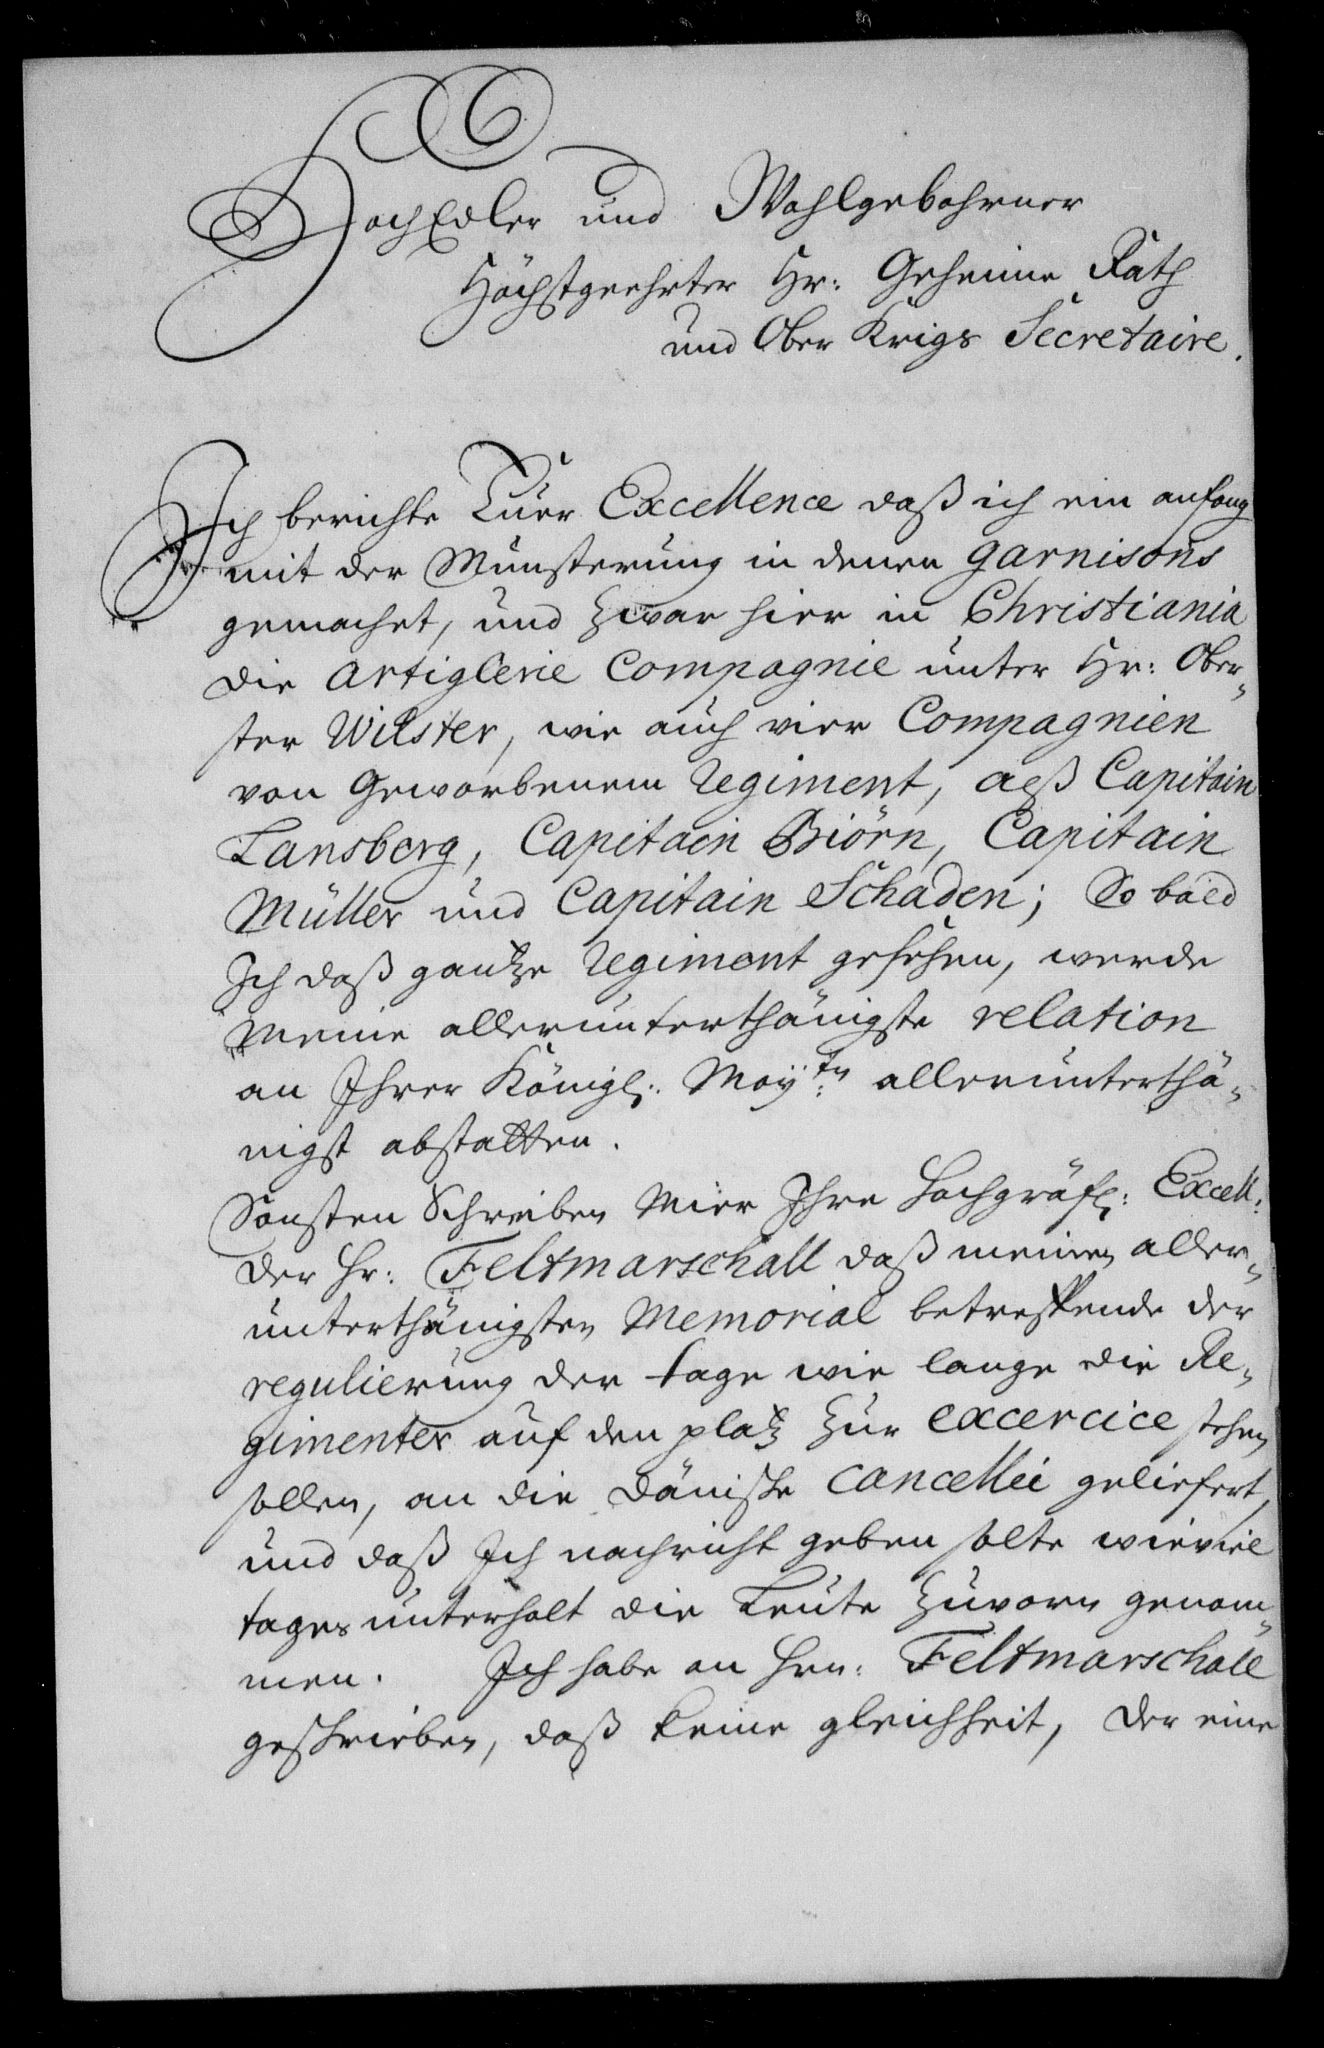 HochEdler und Wohlgebohrner
Höchstgeehrter Hr: Geheime Rath
und Ober Krigs Secretaire.
Ich berichte Euer Excellence daß ich ein anfang
mit der Munsterung in denen garnisons
gemachet, und zwar hier in Christiania
die Artiglerie Compagnie unter Hr: Ober-
ster Wilster, wie auch vier Compagnien
von Geworbenem Regiment, alß Capitain
Lansberg, Capitain Biörn, Capitain
Müller und Capitain Schaden; So bald
Ich daß gantze Regiment gesehen, werde
Meine allerunterthänigste relation
an Ihrer Königl: Mayt:en allerunterthä-
nigst abstatten.
Sonsten Schreiben Mier Ihre Hochgräfl: Excell:
der Hr: Feltmarschall daß meinen aller-
unterthänigsten Memorial betreffende der
regulierung der tage wie lange die Re-
gimenter auf den platz zur excercice stehen
sollen, an die Dänische Cancellie geliefert,
und daß Ich nachricht geben solte wieviel
tages unterhalt die Leute zuvorn genom-
men. Ich habe an Hrn: Feltmarschall
geschrieben, daß keine gleichheit, der eine